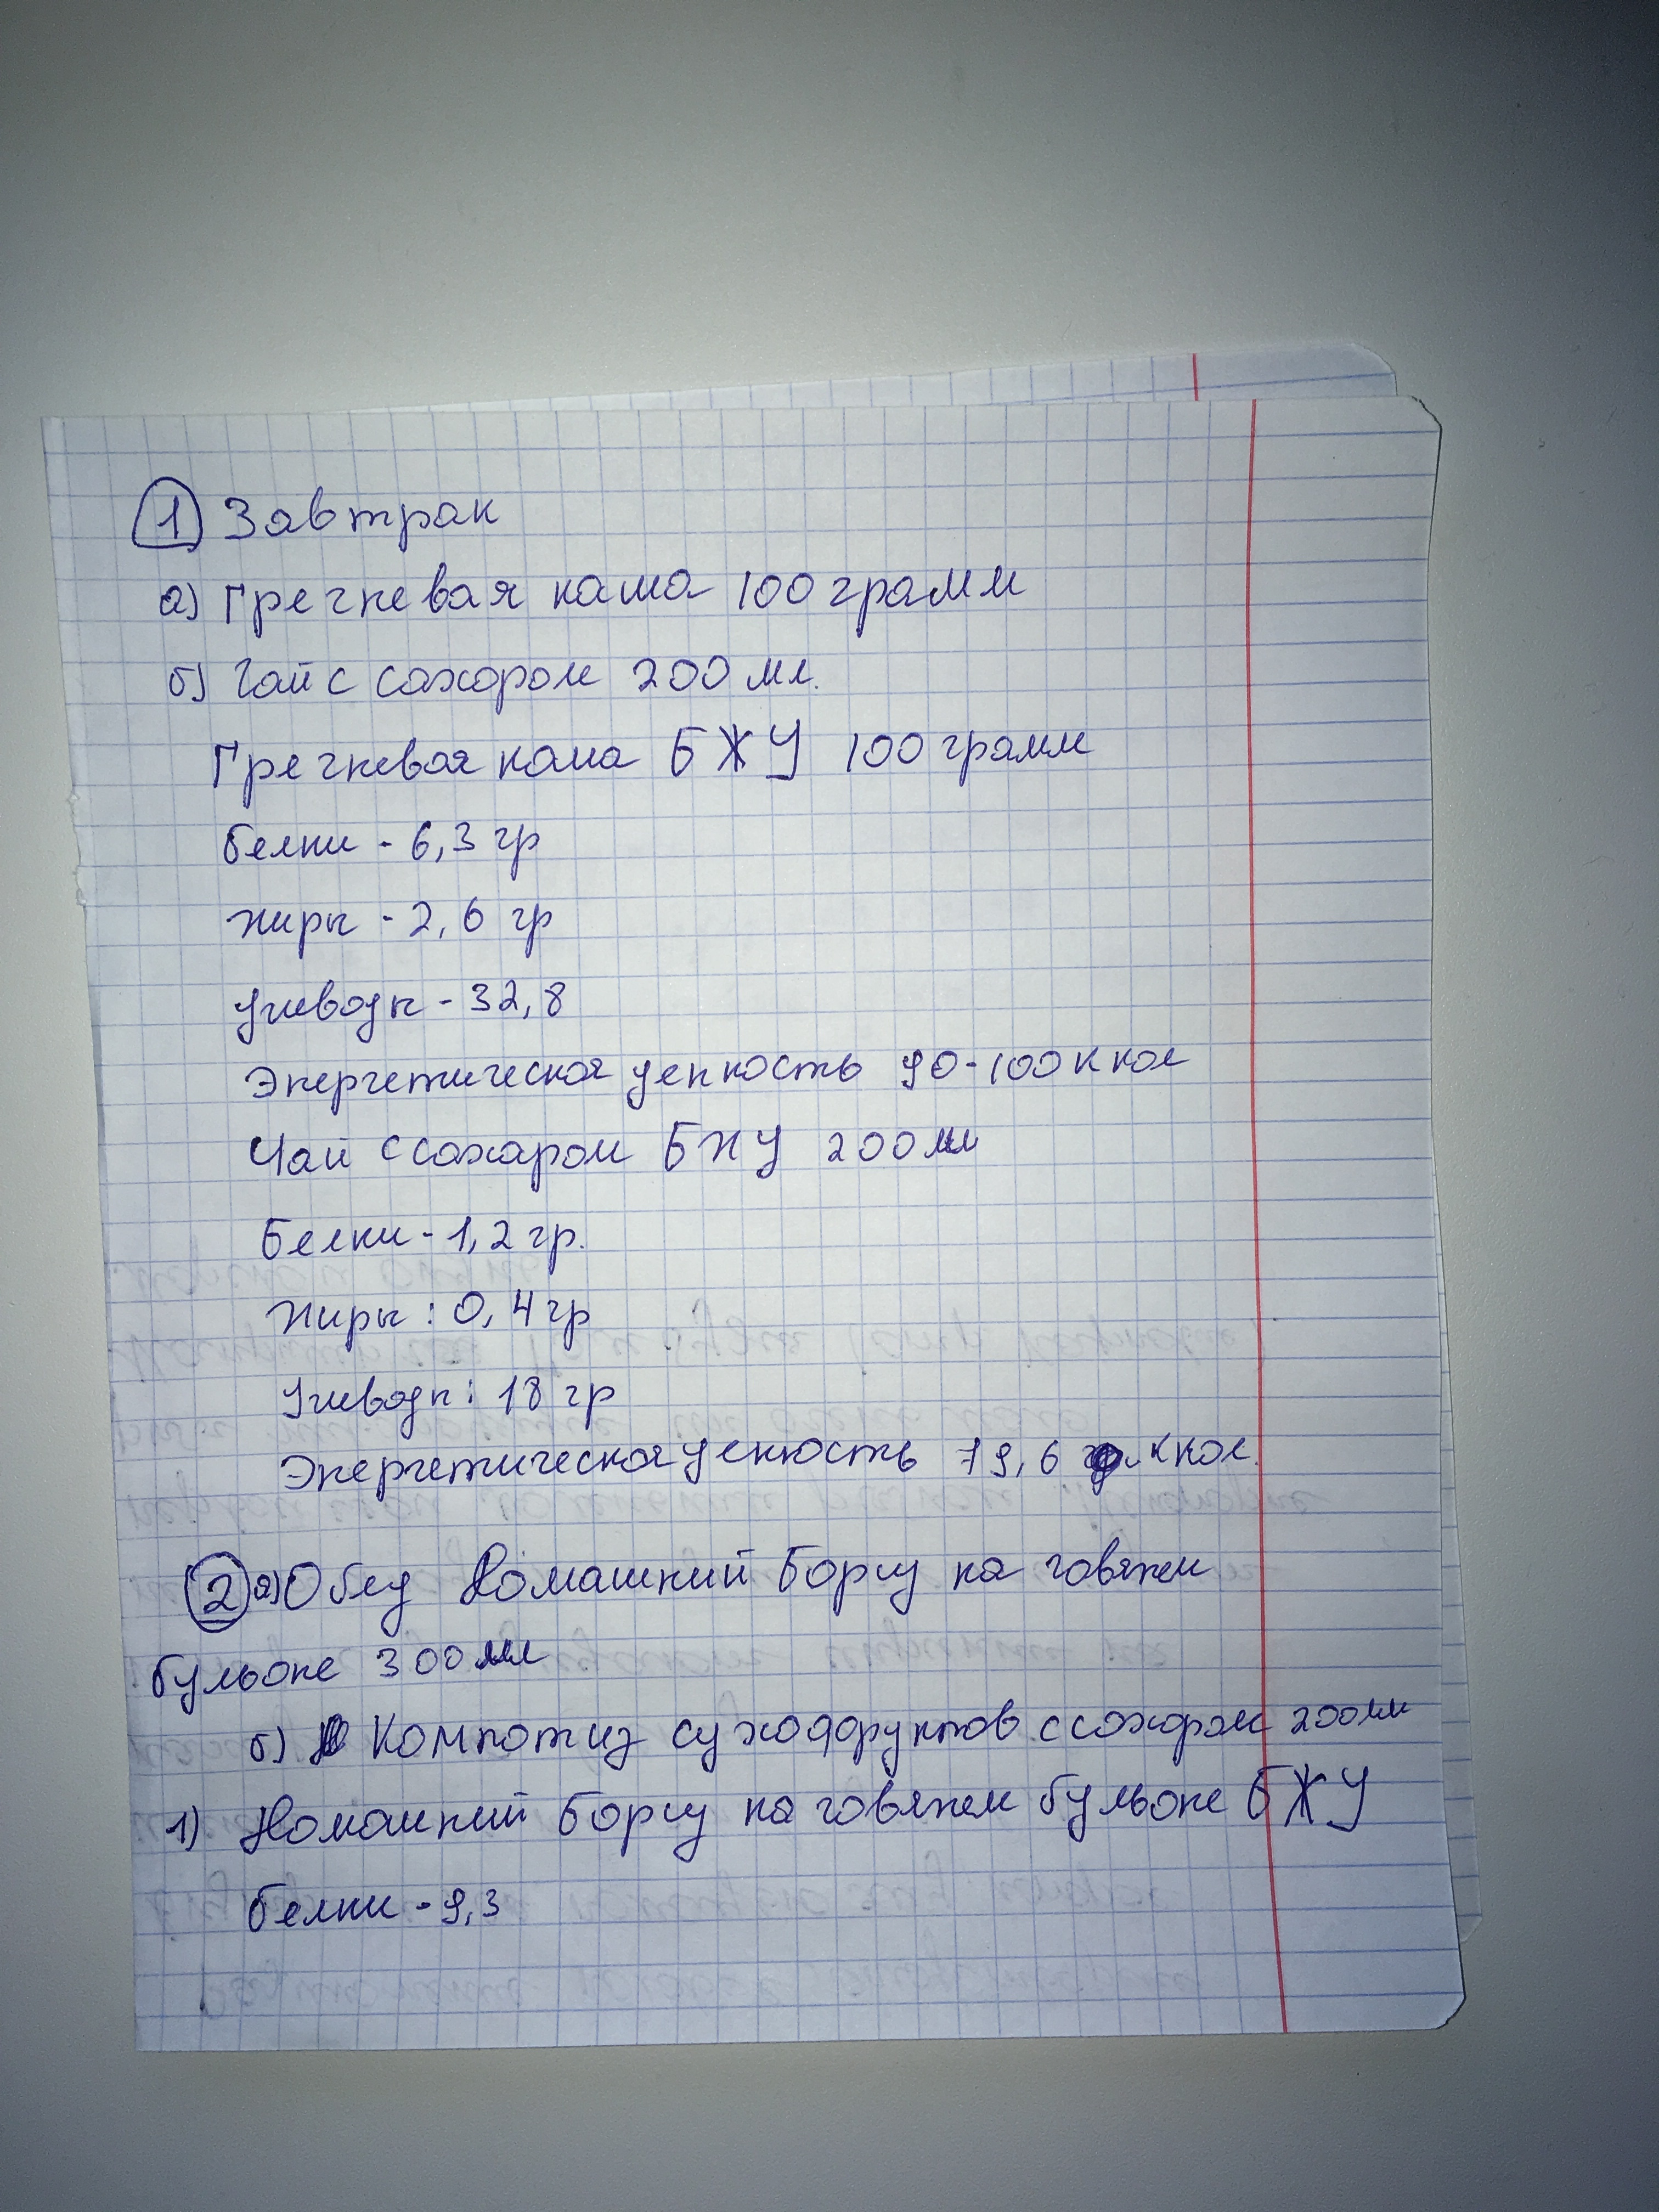 1 Завтрак
а) Гречневая каша 100 грамм
б) Чай с сахаром 200 мл.
Гречневая каша БЖУ 100 грамм
белки - 6,3 гр
жиры - 2,6 гр
углеводы - 32,8
Энергетическая ценность 90-100 ккал
Чай с сахаром БЖУ 200 мл
Белки - 1,2 гр.
Жиры: 0,4 гр
Углеводы: 18 гр
Энергетическая ценность 79,6 ккал.
2 а) Обед Домашний борщ на говяжем
бульоне 300 мл
б) Компот из сухофруктов с сахаром 200 мл
1) Домашний борщ на говяжем бульоне БЖУ
белки - 9,3